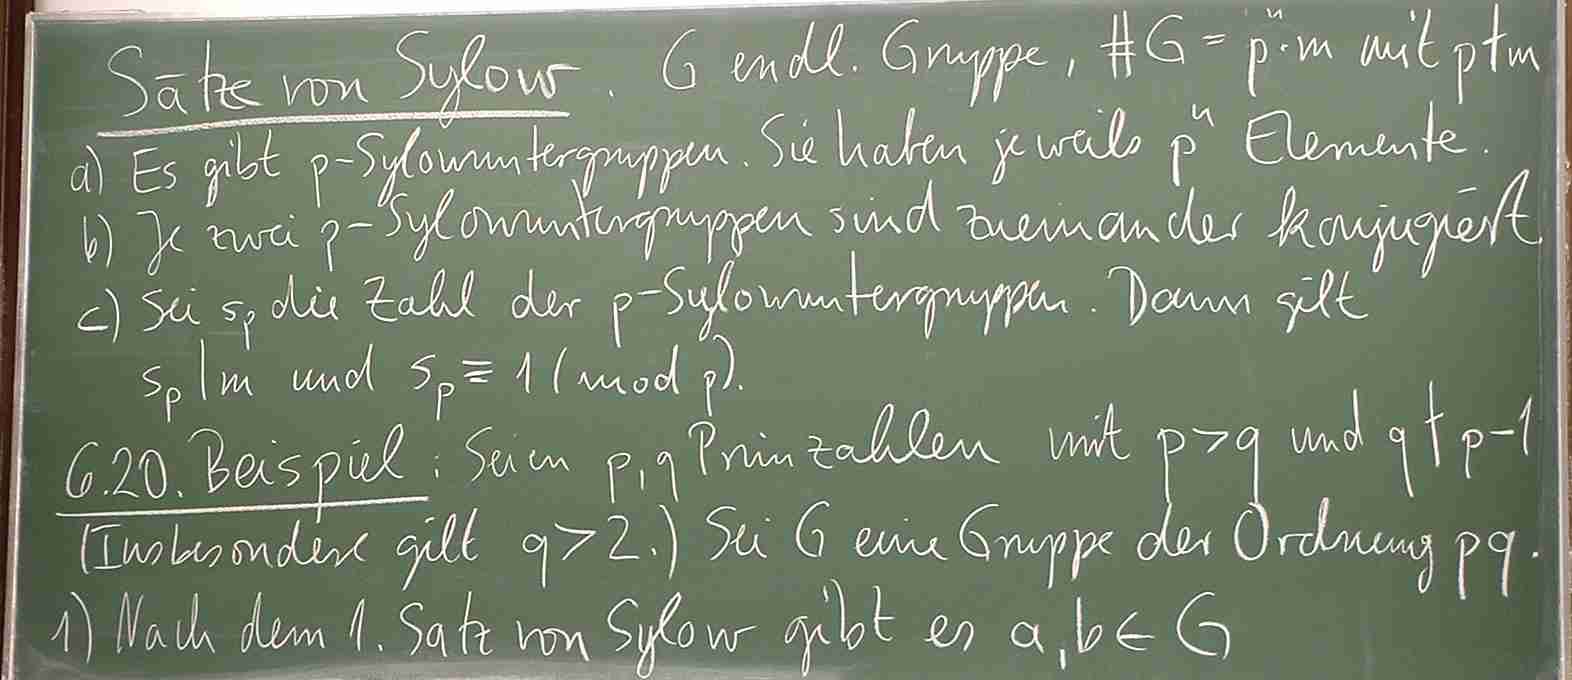 Sätze von Sylow. G endl. Gruppe, #G = pⁿ·m mit p∤m
a) Es gibt p-Sylowuntergruppen. Sie haben jeweils pⁿ Elemente.
b) Je zwei p-Sylowuntergruppen sind zueinander konjugiert.
c) Sei sₚ die Zahl der p-Sylowuntergruppen. Dann gilt
sₚ|m und sₚ ≡ 1 (mod p).
6.20. Beispiel: Seien p,q Primzahlen mit p>q und q∤p-1
(Insbesondere gilt q>2.) Sei G eine Gruppe der Ordnung pq.
1) Nach dem 1. Satz von Sylow gibt es a,b ∈ G